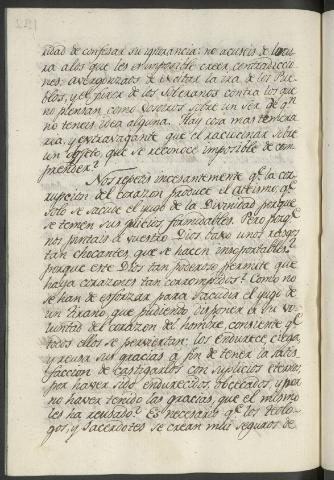 sidad de confesar su ignorancia: no acuseis de locu-
ra alos que les es imposible creer contradiccio-
nes; avergonzaos de excitar la ira de los Pue-
blos, y el furor de los Soberanos contra los que
no piensan como vosotros sobre un Ser de qn
no teneis idea alguna. Hay cosa mas temera-
ria, y extravagante que el raciocinar sobre
un objeto, que se reconoce imposible de com-
prender?
Nos repetis incesantemente qe la cor-
rupcion del corazon produce el ateismo, qe
solo se sacude el yugo de la Divinidad porque
se temen sus juicios formidables. Pero porqe
nos pintais a vuestro Dios baxo unos rasgos
tan chocantes que se hacen insoportables?
porque este Dios tan poderoso permite que
haya corazones tan corrompidos? Como no
se han de esforzar para sacudir el yugo de
un tirano, que pudiendo disponer a su vo-
luntad del corazon del hombre, consiente qe
todos ellos se perviertan, los endurece, ciega,
y reusa sus gracias a fin de tener la satis-
faccion de castigarlos con suplicios eternos,
por haver sido endurecidos, obcecados, y por
no haver tenido las gracias, que el mismo
les ha reusado? Es necesario qe los Teolo-
gos, y Sacerdotes se crean mui seguros de